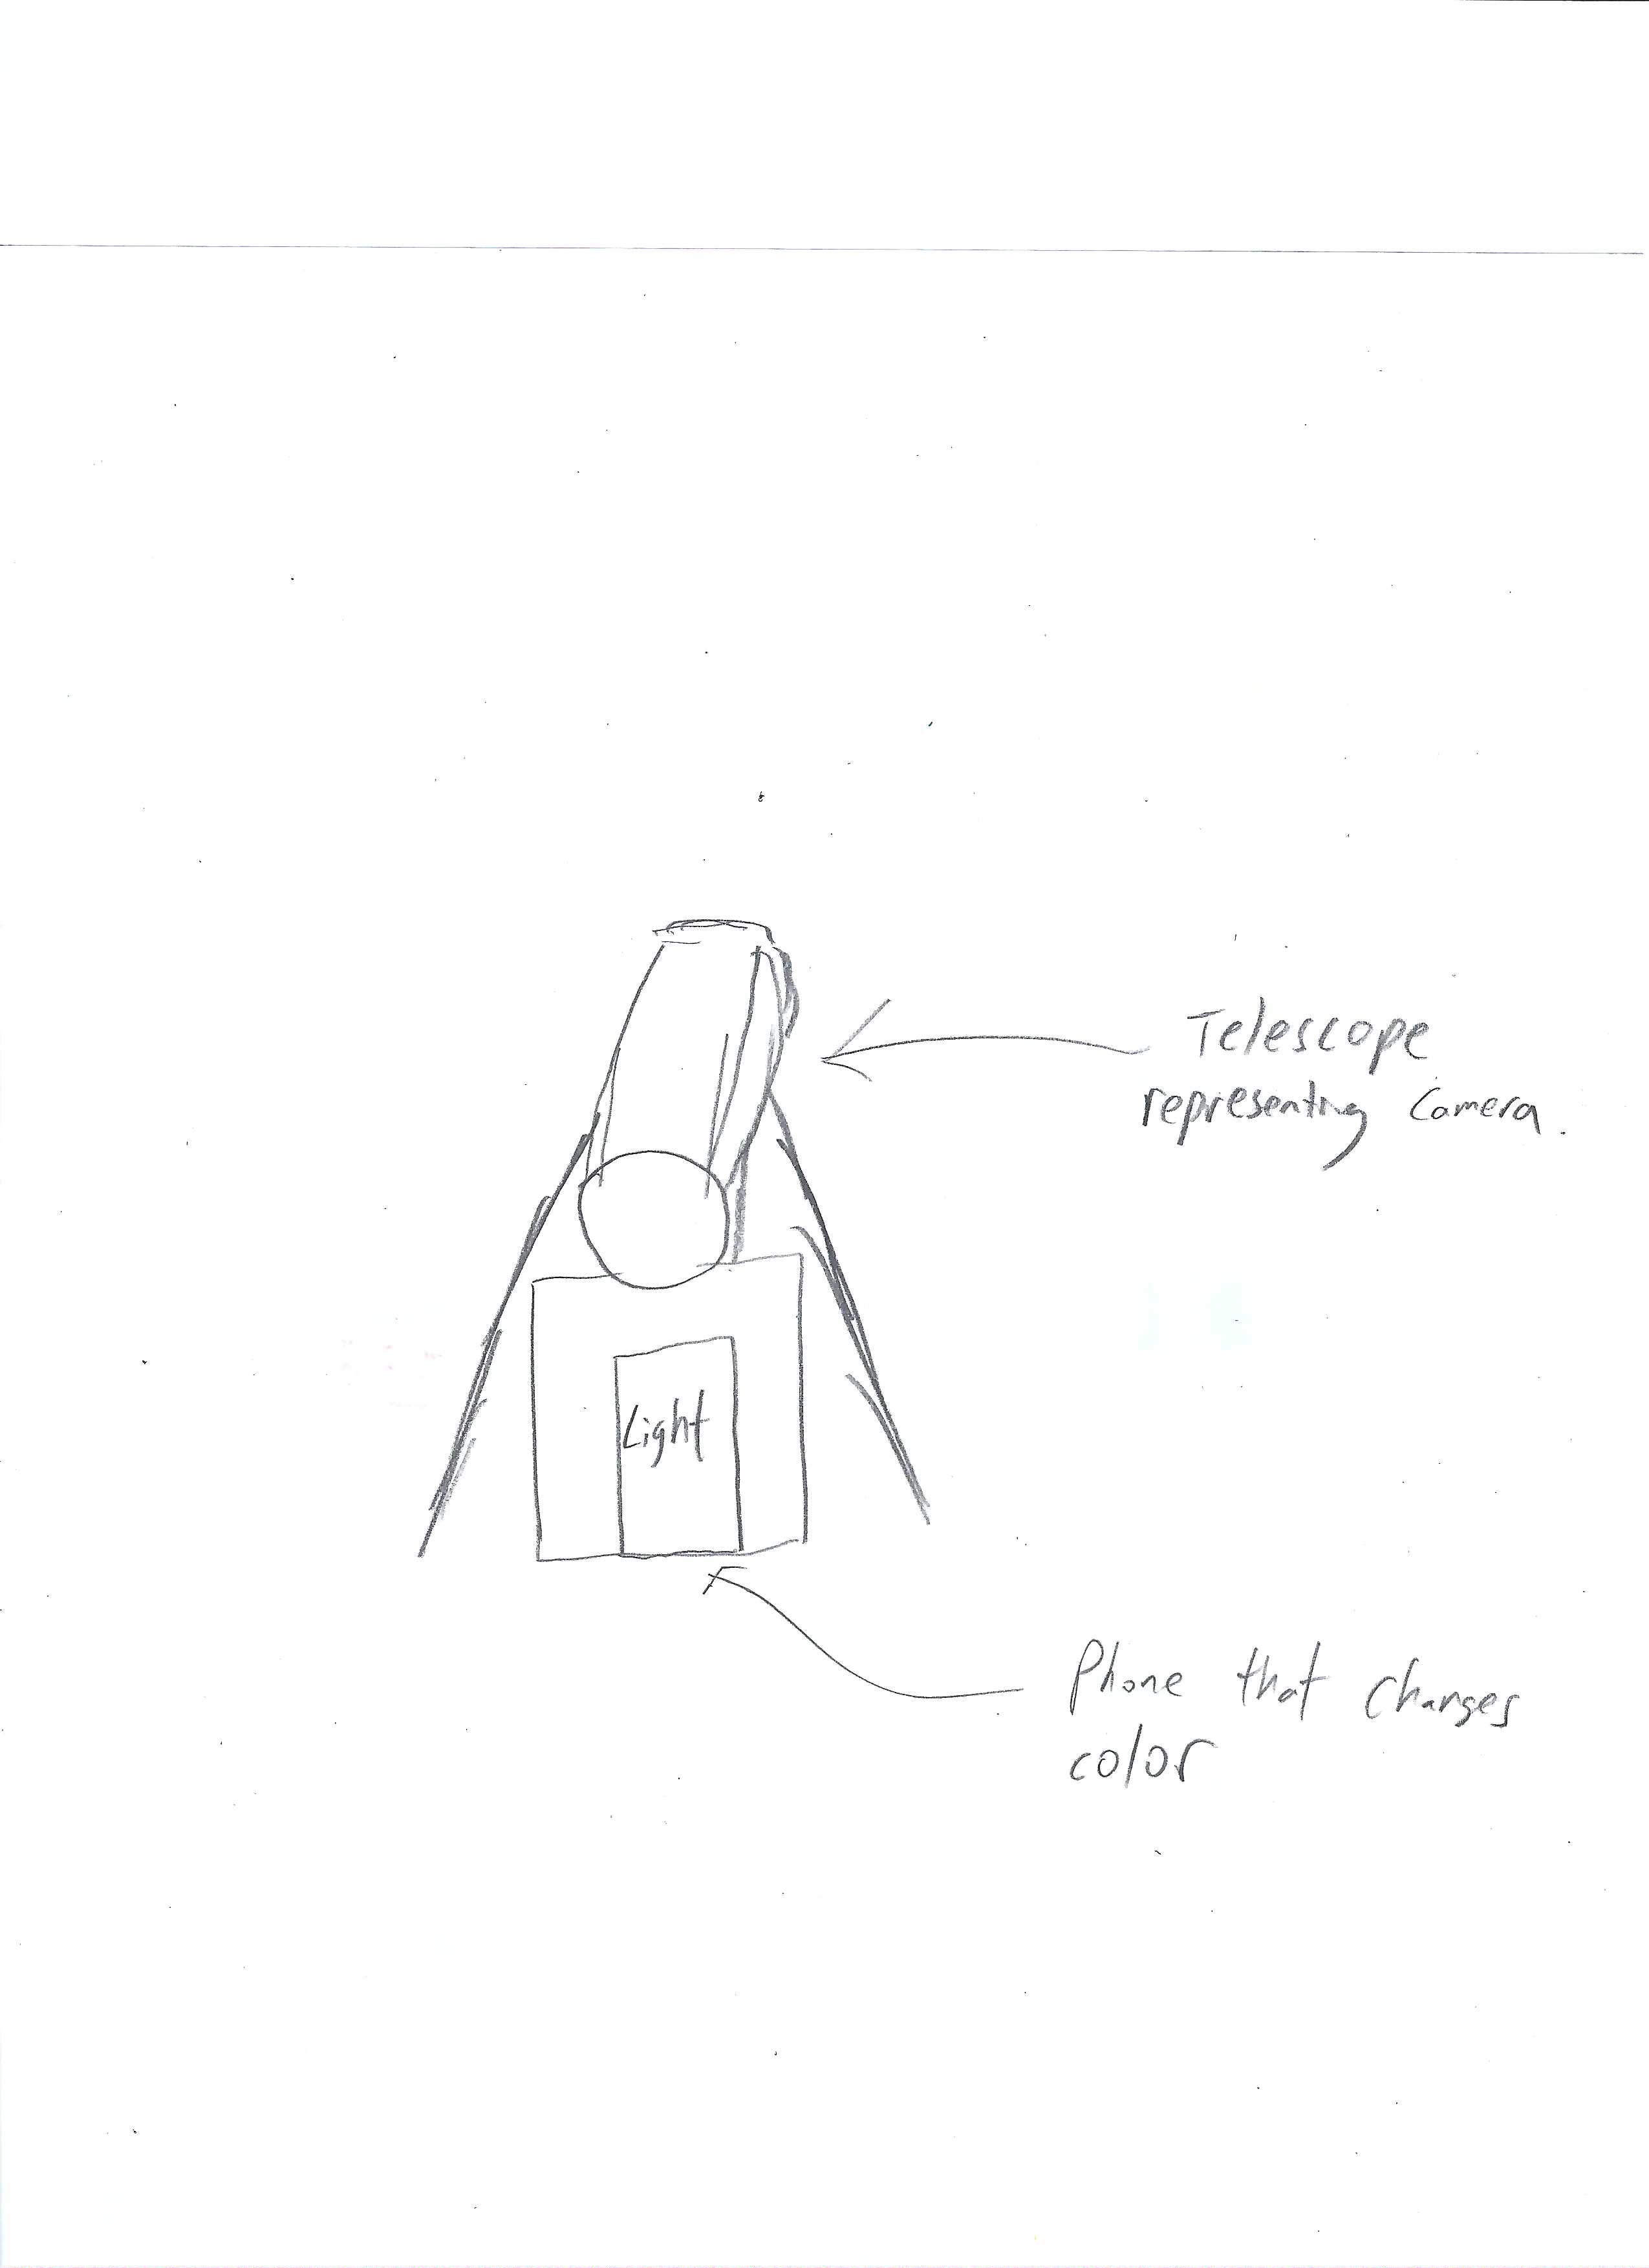 Telescope
representing Camera.
Light
Phone that changes
color